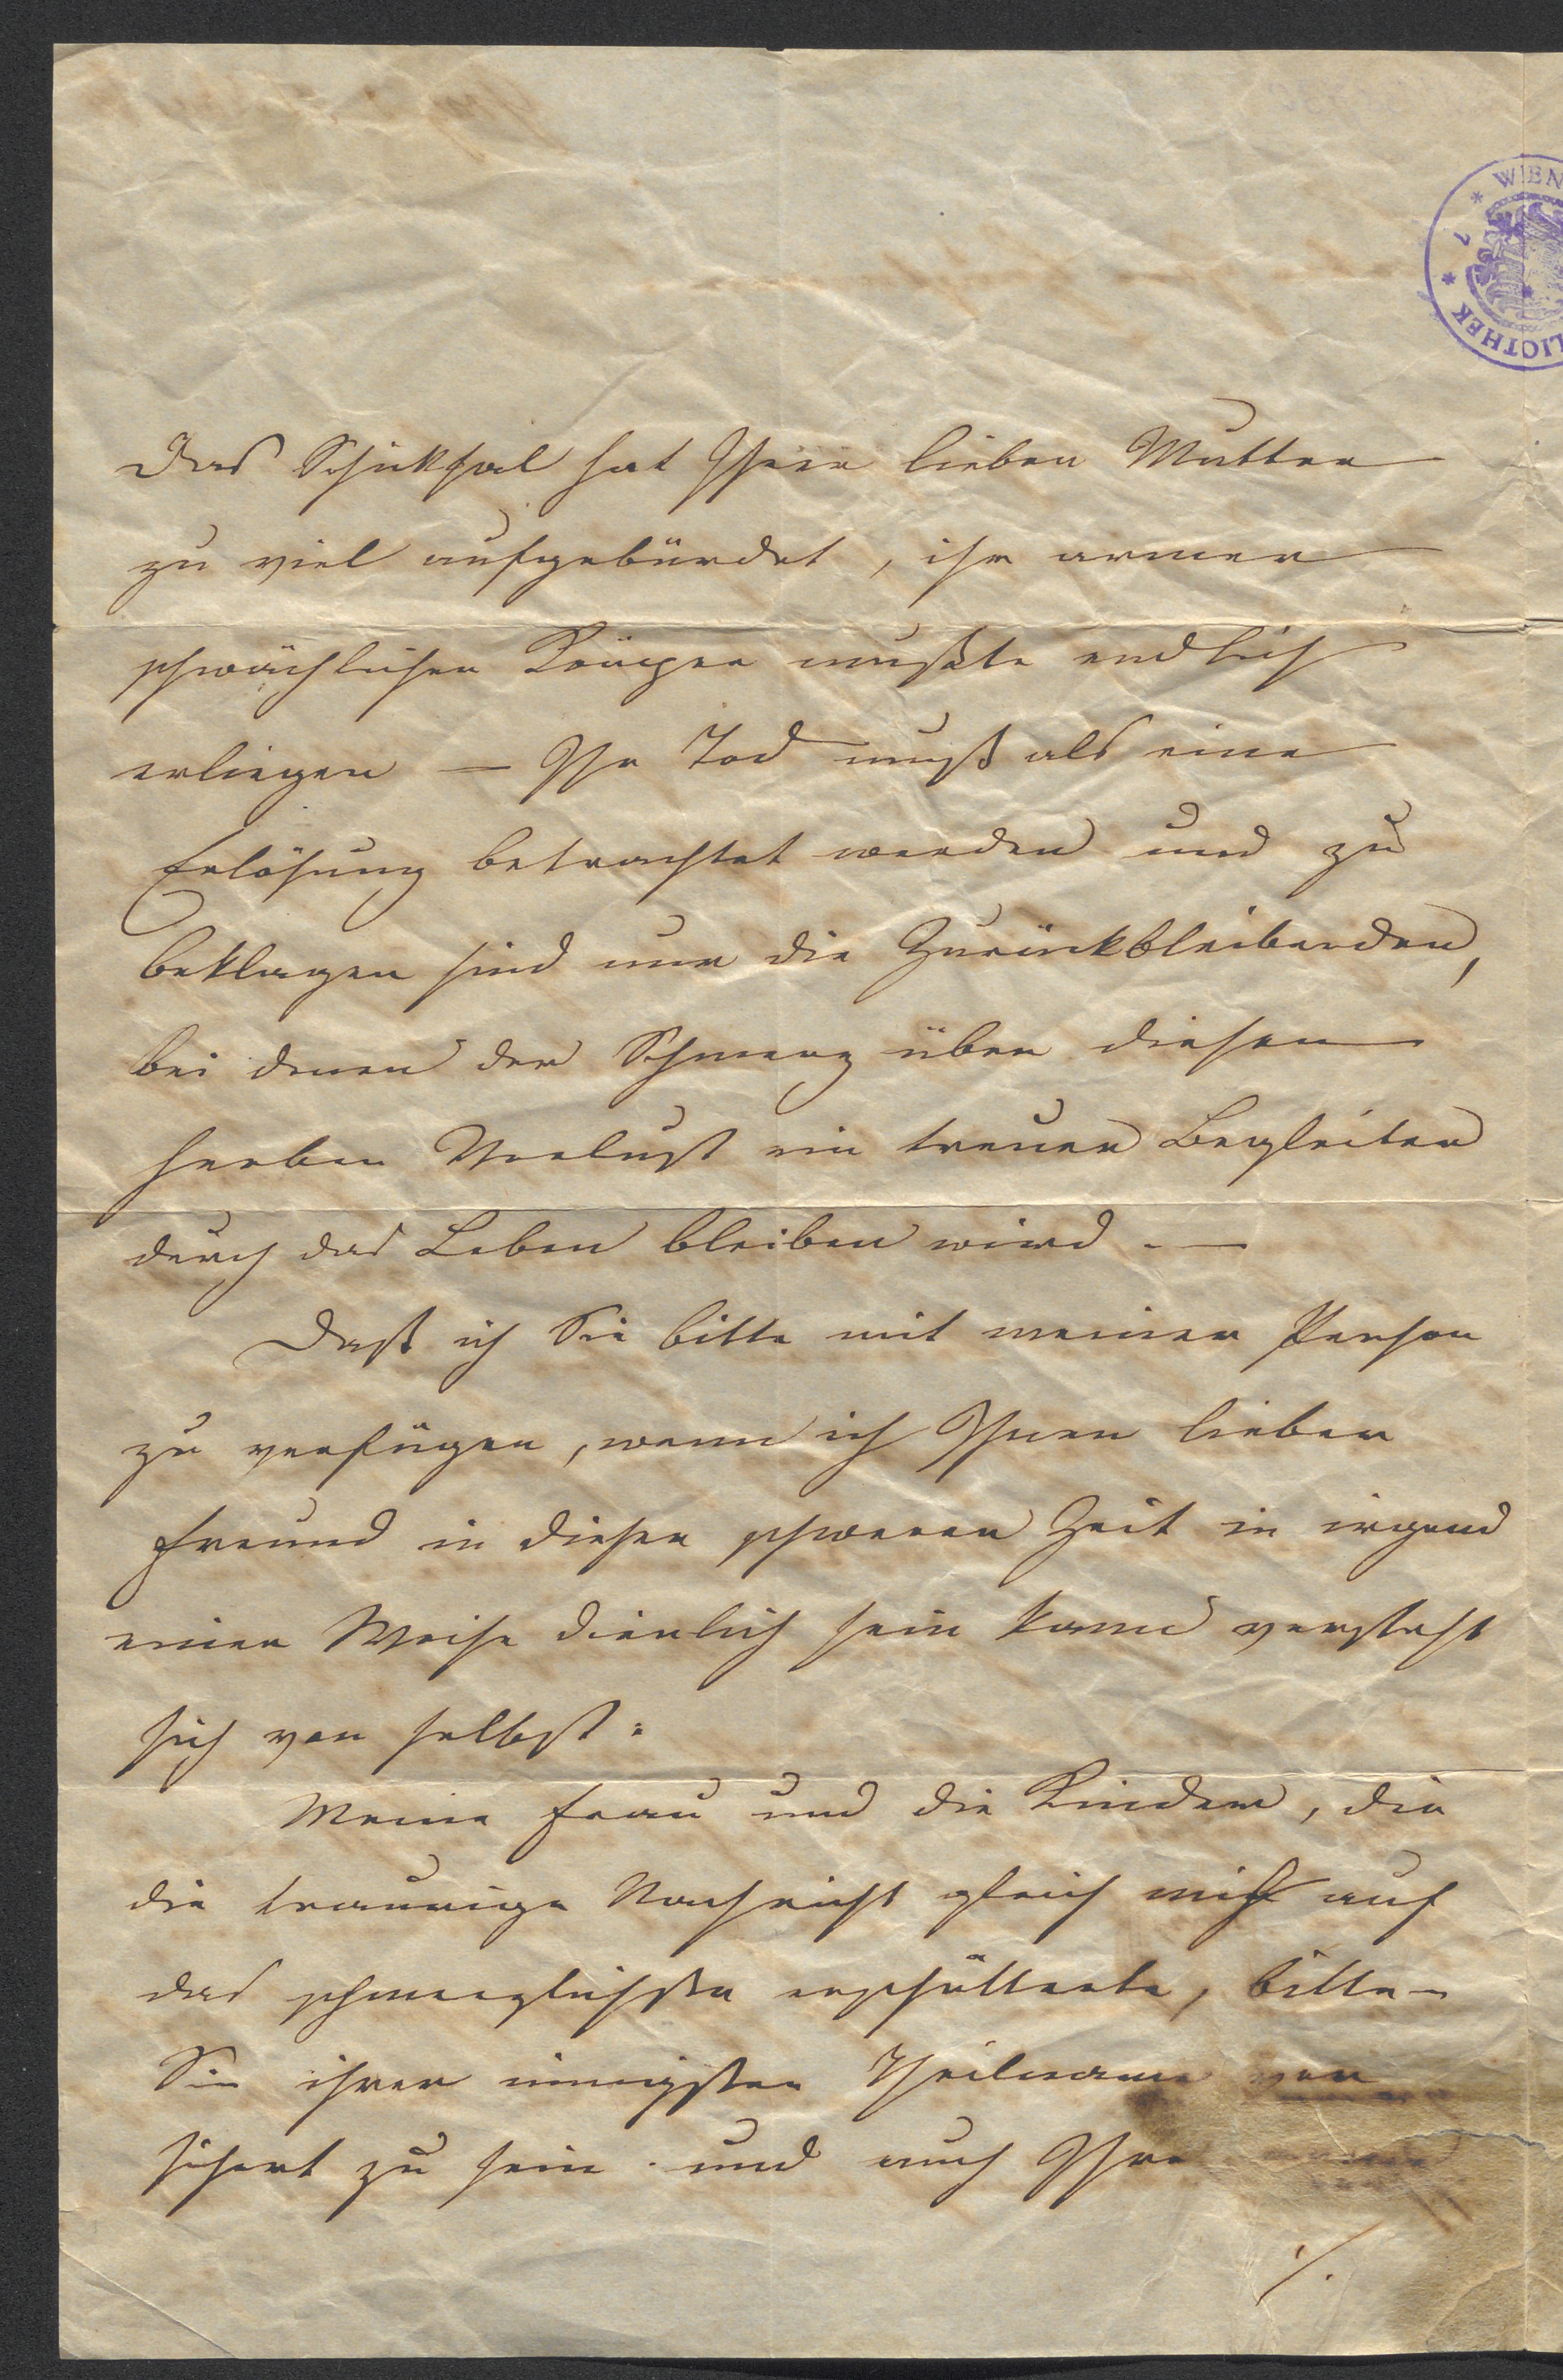 WIEN
BIBLIOTHEK
Das Schicksal hat Ihrer lieben Mutter
zu viel aufgebürdet, ihr armer
schwächlicher Körper mußte endlich
erliegen – Ihr Tod muß als eine
Erlösung betrachtet werden und zu
beklagen sind nur die Zurückbleibenden,
bei denen der Schmerz über diesen
herben Verlust ein treuer Begleiter
durch das Leben bleiben wird. –
Daß ich Sie bitte mit meiner Person
zu verfügen, wenn ich Ihnen lieber
Freund in dieser schweren Zeit in irgend
einer Weise dienlich sein kann versteht
sich von selbst.
Meine Frau und die Kinder, die
die traurige Nachricht gleich mich auf
das schmerzlichste erschütterte, bitten
Sie ihrer innigsten Theilname ver
sichert zu sein und auch Ihre
./.